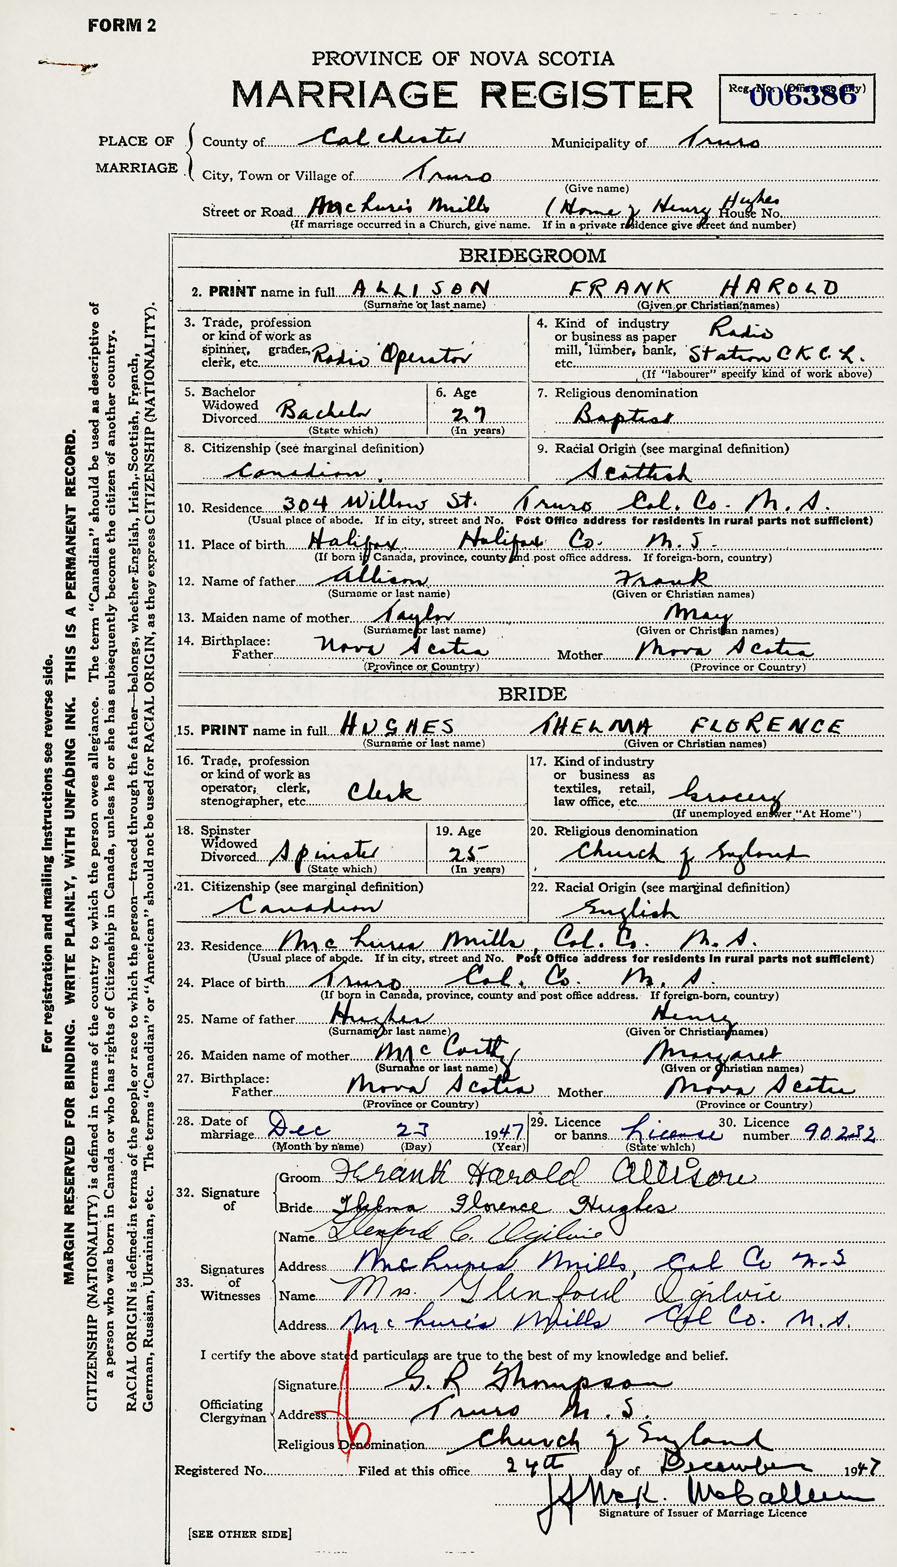 FORM 2
PROVINCE OF NOVA SCOTIA
MARRIAGE REGISTER
Reg. No. (Office use only)
006386
PLACE OF MARRIAGE
County of Colchester Municipality of Truro
City, Town or Village of Truro
(Give name)
Street or Road McClure's Mills (Home of Henry Hughes House No.
(If marriage occurred in a Church, give name. If in a private residence give street and number)
BRIDEGROOM
2. PRINT name in full ALLISON FRANK HAROLD
(Surname or last name) (Given or Christian names)
3. Trade, profession or kind of work as spinner, grader, clerk, etc. Radio Operator
4. Kind of industry or business as paper mill, lumber, bank, etc. Radio Station C K C L.
(If "labourer" specify kind of work above)
5. Bachelor Widowed Divorced Bachelor
(State which)
6. Age 27
(In years)
7. Religious denomination
Baptist
8. Citizenship (see marginal definition)
Canadian
9. Racial Origin (see marginal definition)
Scottish
10. Residence 304 Willow St. Truro Col. Co. N. S.
(Usual place of abode. If in city, street and No. Post Office address for residents in rural parts not sufficient)
11. Place of birth Halifax Halifax Co. N. S.
(If born in Canada, province, county and post office address. If foreign-born, country)
12. Name of father Allison Frank
(Surname or last name) (Given or Christian names)
13. Maiden name of mother Taylor May
(Surname or last name) (Given or Christian names)
14. Birthplace:
Father Nova Scotia Mother Nova Scotia
(Province or Country) (Province or Country)
BRIDE
15. PRINT name in full HUGHES THELMA FLORENCE
(Surname or last name) (Given or Christian names)
16. Trade, profession or kind of work as operator, clerk, stenographer, etc. Clerk
17. Kind of industry or business as textiles, retail, law office, etc. Grocery
(If unemployed answer "At Home")
18. Spinster Widowed Divorced Spinster
(State which)
19. Age 25
(In years)
20. Religious denomination
Church of England
21. Citizenship (see marginal definition)
Canadian
22. Racial Origin (see marginal definition)
English
23. Residence McClures Mills, Col. Co. N. S.
(Usual place of abode. If in city, street and No. Post Office address for residents in rural parts not sufficient)
24. Place of birth Truro Col. Co. N. S.
(If born in Canada, province, county and post office address. If foreign-born, country)
25. Name of father Hughes Henry
(Surname or last name) (Given or Christian names)
26. Maiden name of mother McCarthy Margaret
(Surname or last name) (Given or Christian names)
27. Birthplace:
Father Nova Scotia Mother Nova Scotia
(Province or Country) (Province or Country)
28. Date of marriage Dec 23 1947
(Month by name) (Day) (Year)
29. Licence or banns License
(State which)
30. Licence number 90232
32. Signature of
Groom Frank Harold Allison
Bride Thelma Florence Hughes
33. Signatures of Witnesses
Name Glenford C. Ogilvie
Address McClures Mills, Col Co N. S
Name Mrs. Glenford Ogilvie
Address McClure's Mills Col Co. N. S.
I certify the above stated particulars are true to the best of my knowledge and belief.
Officiating Clergyman
Signature G. R Thompson
Address Truro N. S.
Religious Denomination Church of England
Registered No. Filed at this office 24th day of December 1947
McCallum
Signature of Issuer of Marriage Licence
[SEE OTHER SIDE]
For registration and mailing instructions see reverse side.
MARGIN RESERVED FOR BINDING. WRITE PLAINLY, WITH UNFADING INK. THIS IS A PERMANENT RECORD.
CITIZENSHIP (NATIONALITY) is defined in terms of the country to which the person owes allegiance. The term "Canadian" should be used as descriptive of
a person who was born in Canada or who has rights of Citizenship in Canada, unless he or she has subsequently become the citizen of another country.
RACIAL ORIGIN is defined in terms of the people or race to which the person—traced through the father—belongs, whether English, Irish, Scottish, French,
German, Russian, Ukrainian, etc. The terms "Canadian" or "American" should not be used for RACIAL ORIGIN, as they express CITIZENSHIP (NATIONALITY).